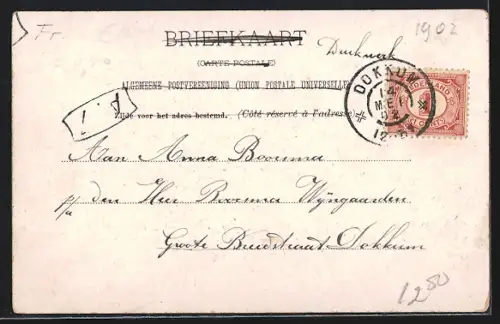 Fr.
1902
BRIEFKAART
(CARTE POSTALE)
Drukwerk
ALGEMEENE POSTVEREENIGING (UNION POSTALE UNIVERSELLE)
Zijde voor het adres bestemd. (Côté réservé à l'adresse)
DOKKUM
14
MEI
02
NEDERLAND
Aan Anna Boersma
p/a den Heer Boersma Wijngaarden
Groote Breedstraat Dokkum
1250